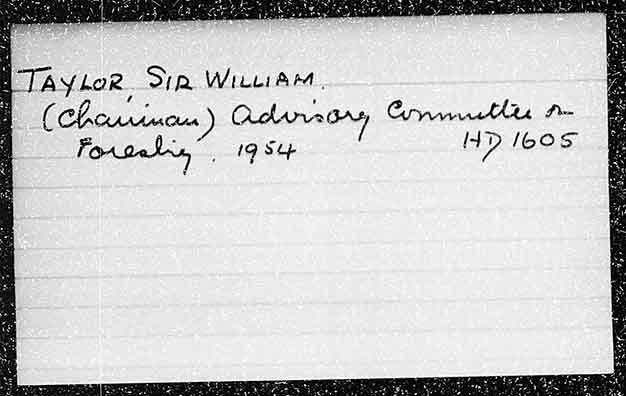 TAYLOR, SIR WILLIAM.
(Chairman) Advisory Committee on
Forestry. 1954 HD 1605